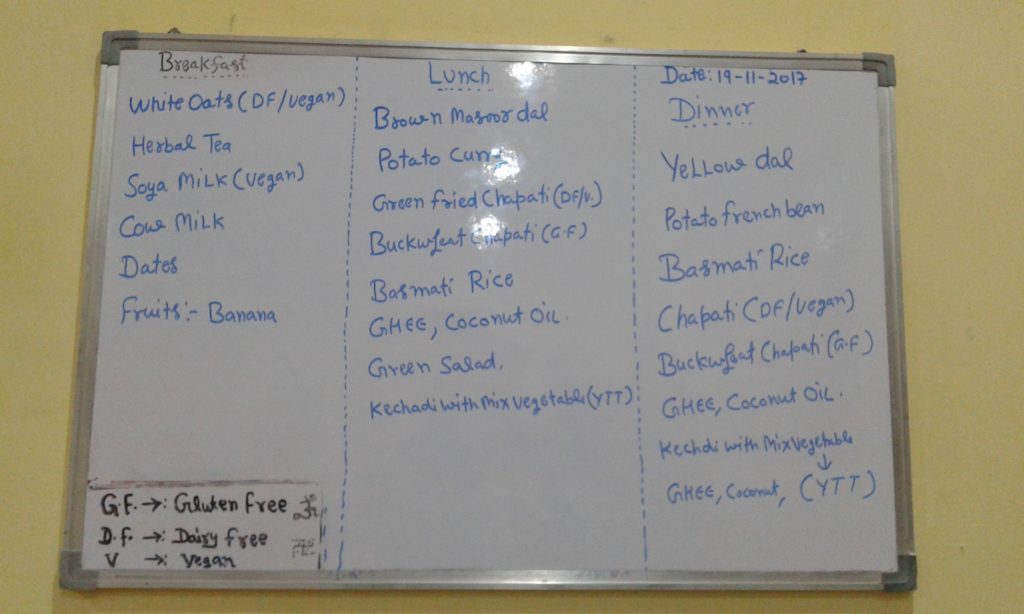 Breakfast
White Oats (DF/vegan)
Herbal Tea
Soya MILK (vegan)
Cow MILK
Dates
Fruits:- Banana
G.F. →: Gluten free
D.F. →: Dairy free
V →: Vegan
Lunch
Brown Masoor dal
Potato Curry
Green fried Chapati (DF/V.)
Buckwfeat Chapati (G.F)
Basmati Rice
GHEE, Coconut OIL.
Green Salad.
Kechadi with Mix Vegetable (YTT)
Date: 19-11-2017
Dinner
Yellow dal
Potato french bean
Basmati Rice
Chapati (DF/Vegan)
Buckwfeat Chapati (G.F)
GHEE, Coconut OIL.
Kechdi with Mix Vegetable
↓
GHEE, Coconut, (YTT)